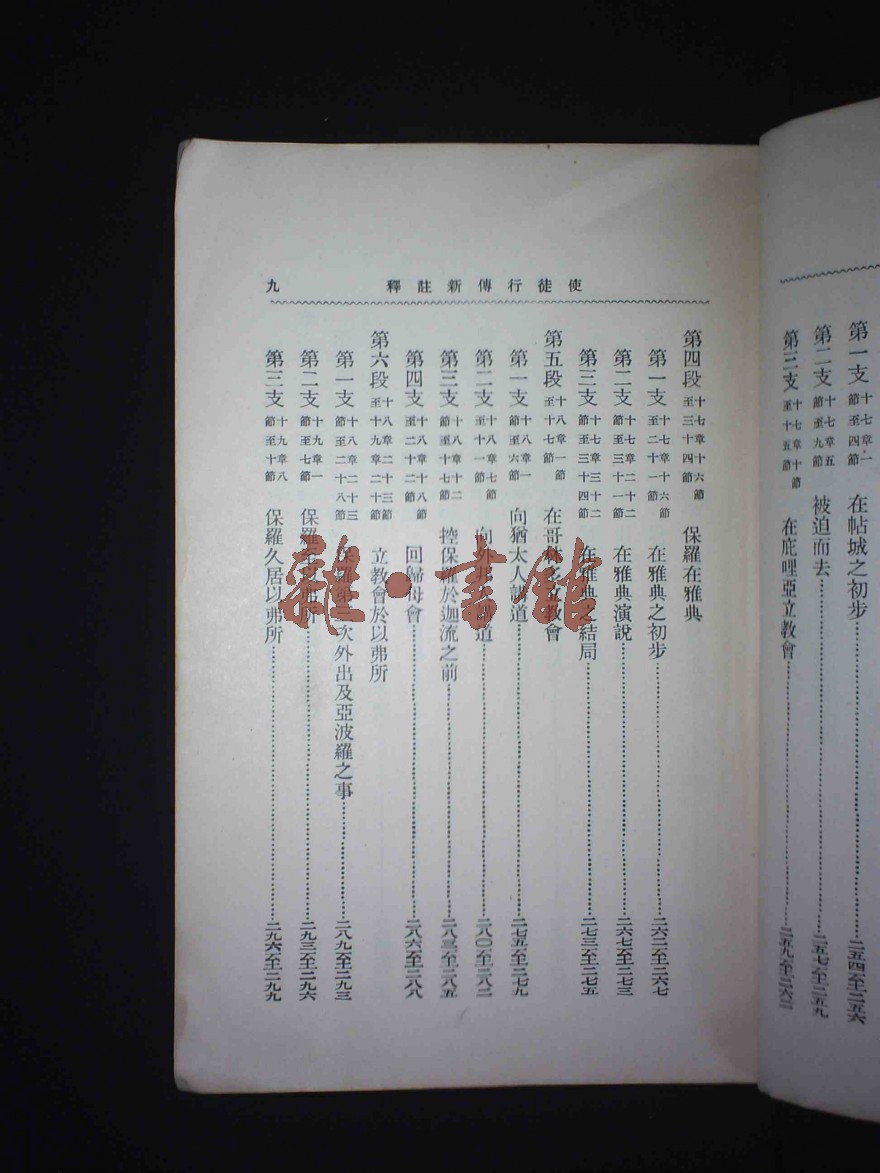 第一支 十七章一節至四節 在帖城之初步……二五四至二五六
第二支 十七章五節至九節 被迫而去……二五七至二五九
第三支 十七章十節至十五節 在庇哩亞立教會……二五九至二六二
使徒行傳新註釋 九
第四段 十七章十六節至三十四節 保羅在雅典
第一支 十七章十六節至二十一節 在雅典之初步……二六二至二六七
第二支 十七章二十二節至三十一節 在雅典演說……二六七至二七三
第三支 十七章三十二節至三十四節 在雅典之結局……二七三至二七五
第五段 十八章一節至十七節 在哥林多立教會
第一支 十八章一節至六節 向猶太人講道……二七五至二七九
第二支 十八章七節至十一節 向外邦人講道……二八〇至二八二
第三支 十八章十二節至十七節 控保羅於迦流之前……二八三至二八五
第四支 十八章十八節至二十二節 回歸母會……二八六至二八八
第六段 十八章二十三節至十九章二十節 立教會於以弗所
第一支 十八章二十三節至二十八節 保羅第三次外出及亞波羅之事……二八九至二九三
第二支 十九章一節至七節 保羅以弗所……二九三至二九六
第三支 十九章八節至十節 保羅久居以弗所……二九六至二九九
雜·書館